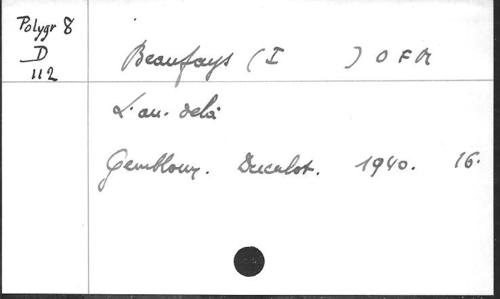 Polygr 8
D
112
Beaufays (I ) O F M
L'au-delà
Gembloux. Duculot. 1940. 16.